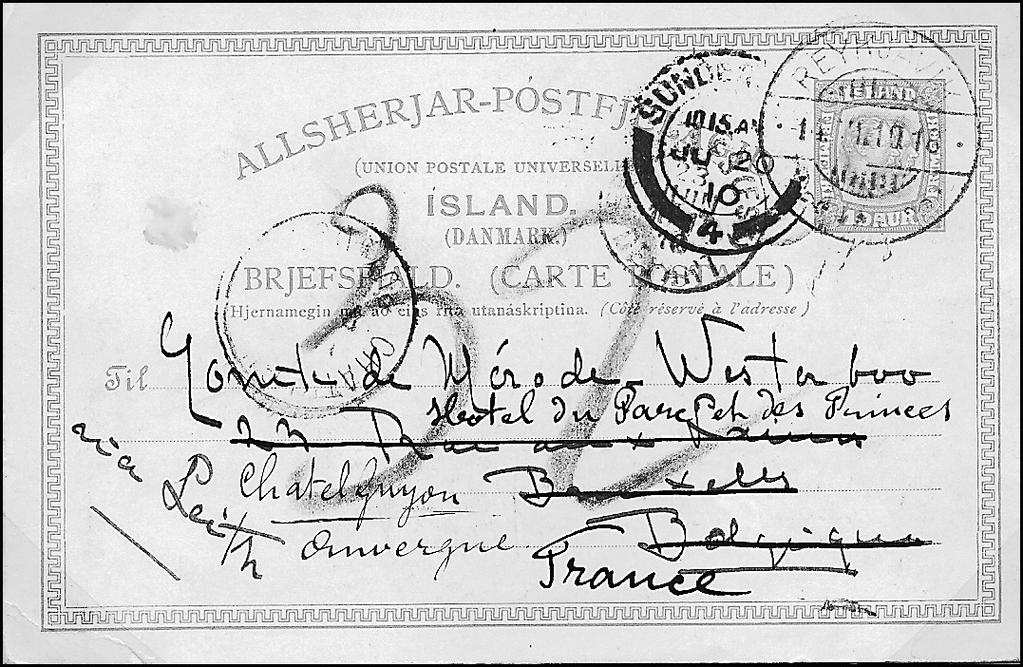 ALLSHERJAR-PÓSTFJ
(UNION POSTALE UNIVERSELLE
ÍSLAND.
(DANMARK.)
BRJEFSPJALD. (CARTE POSTALE)
(Hjernamegin má að eins rita utanáskriptina. (Côté réservé à l'adresse)
REYKJAVÍK
ÍSLAND
AUR
10.15 AM
JU 20
10
Til Comte de Mérode Westerloo
Hotel du Parc et des Princes
Rue aux Laines
Chatelguyon Bruxelles
Auvergne Belgique
France
via
Leith